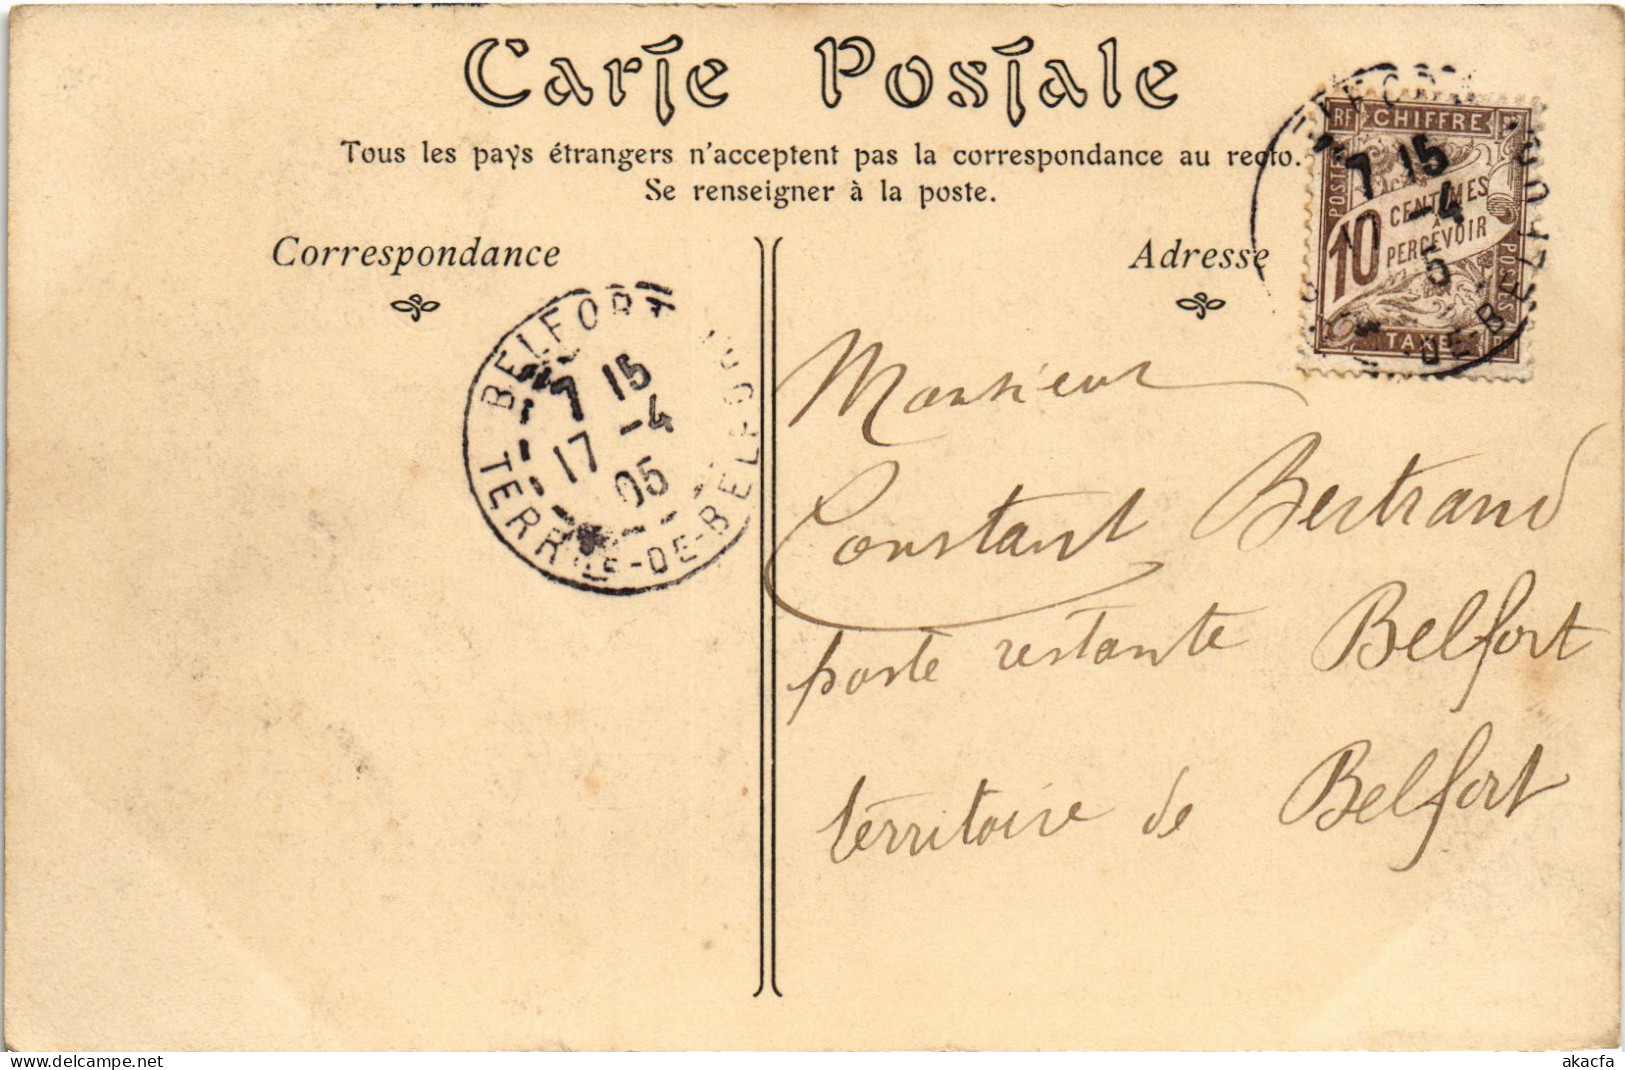 Carte Postale
Tous les pays étrangers n'acceptent pas la correspondance au recto.
Se renseigner à la poste.
Correspondance
Adresse
RF CHIFFRE
POSTES
10 CENTIMES
À
PERCEVOIR
POSTES
TAXE
BELFORT
7 15
17 -4
05
TERRRE-DE-BELFORT
7 15
17 -4
5
-DE-BELFORT
Monsieur
Constant Bertrand
poste restante Belfort
térritoire de Belfort
https://www.delcampe.net
akacfa